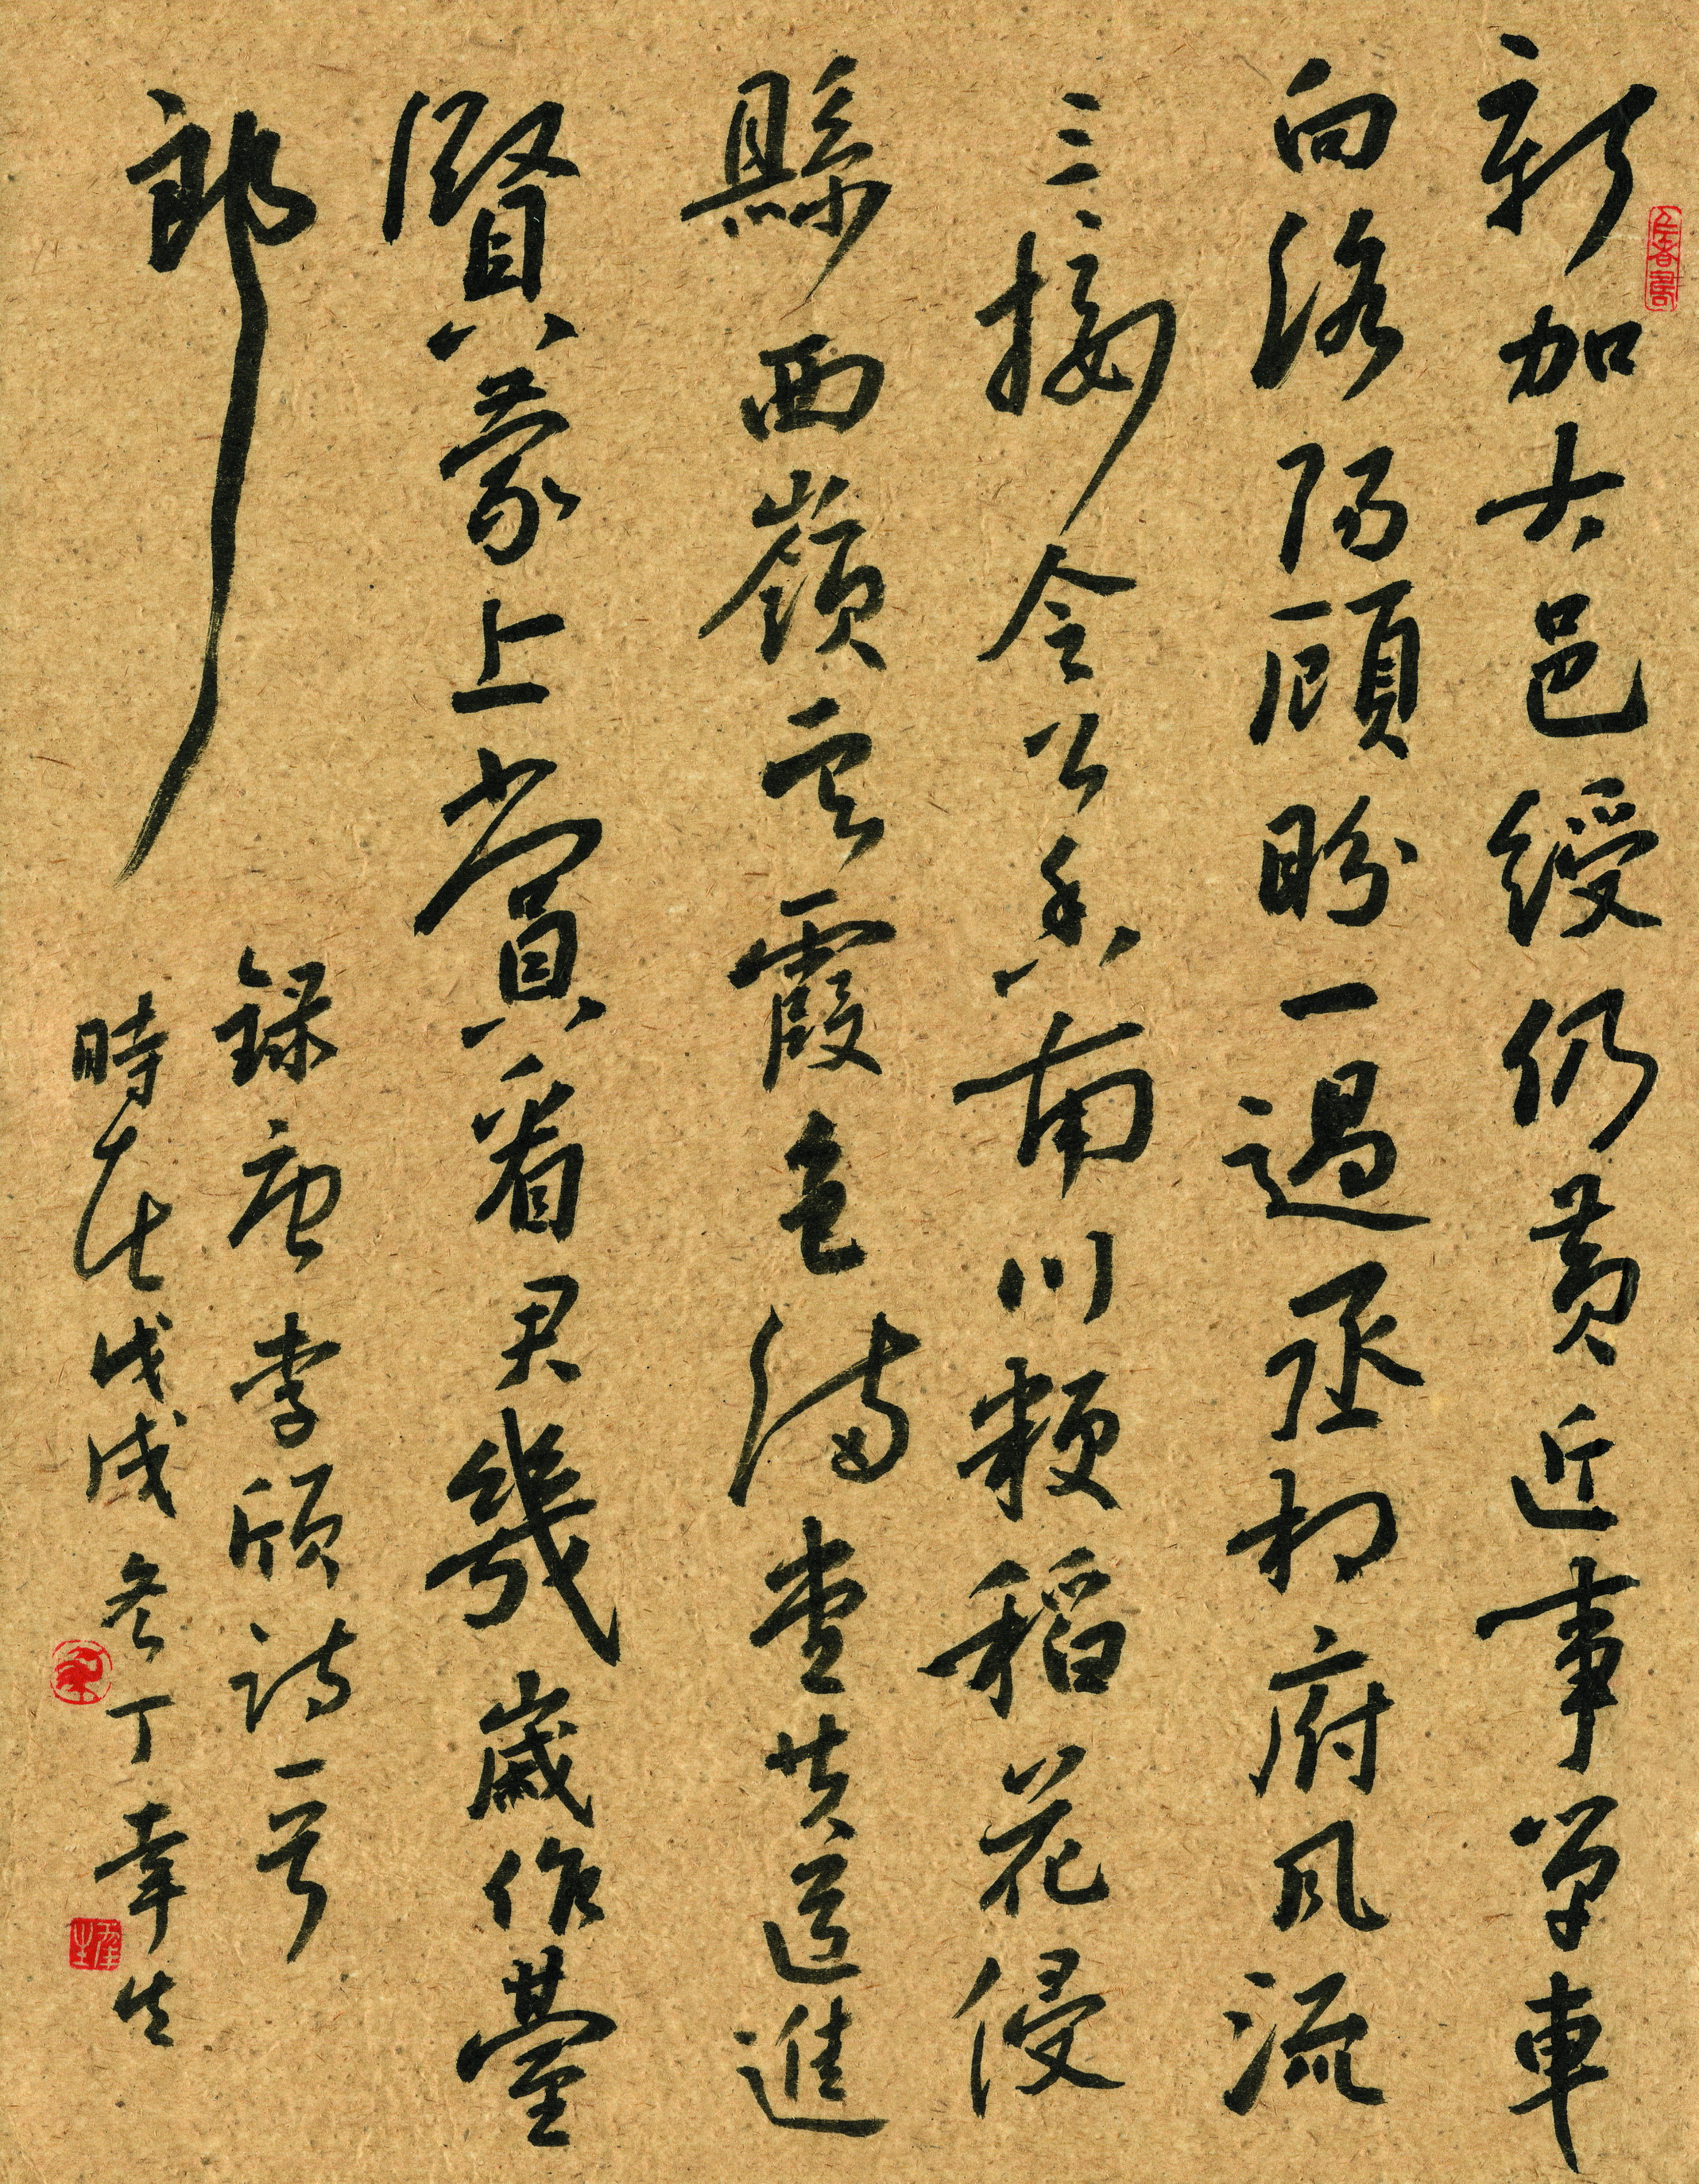 新加大邑綬仍黃近事單車
向洛陽顧盼一過丞相府風流
三接令公香南川粳稻花侵
縣西嶺雲霞色滿堂共道進
賢蒙上賞看君幾歲作臺
郎
錄唐李頎詩一首
時在戊戌冬丁幸生